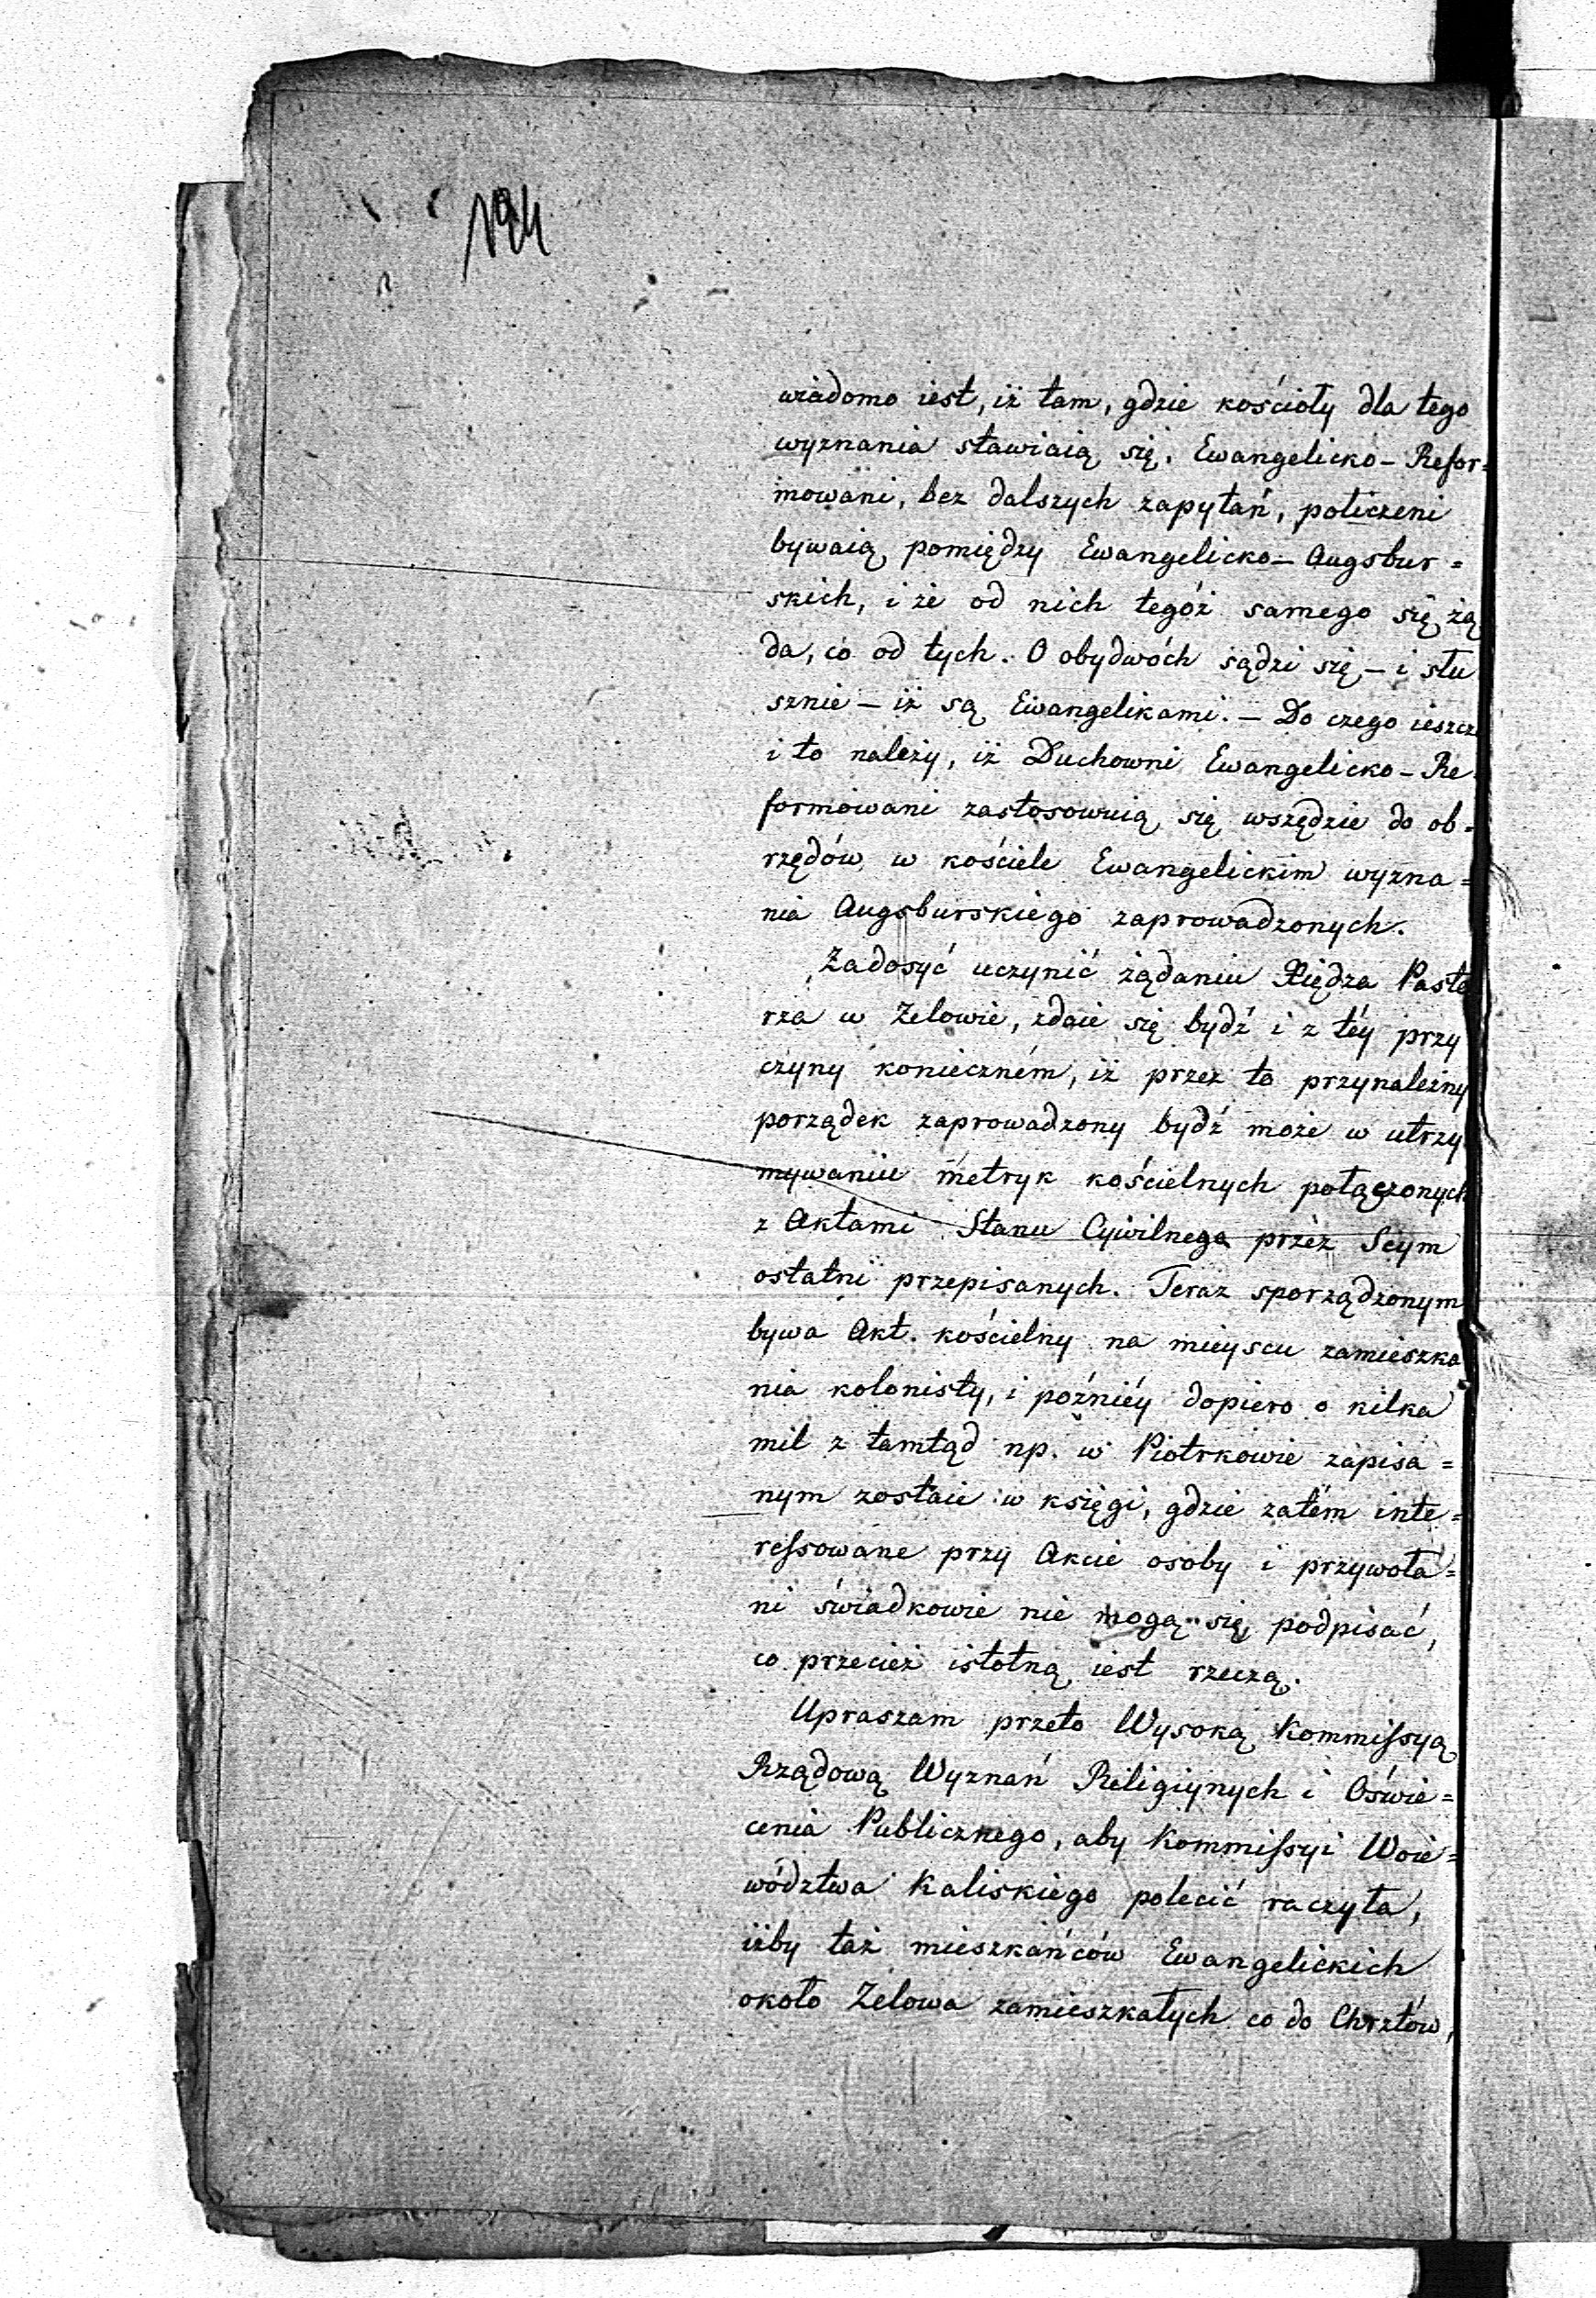 194
wiadomo iest, iż tam, gdzie kościoły dla tego
wyznania stawiaią się, Ewangelicko-Refor=
mowani, bez dalszych zapytań, policzeni
bywaią pomiędzy Ewangelicko-Augsbur=
skich, i że od nich tegóż samego się żą
da, co od tych. O obydwóch sądzi się - i słu
sznie - iż są Ewangelikami. - Do czego ieszcz
i to należy, iż Duchowni Ewangelicko-Re=
formowani zastosowuią się wszędzie do ob=
rzędów w kościele Ewangelickim wyzna=
nia Augsburskiego zaprowadzonych.
Zadosyć uczynić żądaniu Xiędza Paste
rza w Zelowie, zdaie się bydź i z téy przy
czyny konieczném, iż przez to przynależny
porządek zaprowadzony bydź może w utrzy
mywaniu metryk kościelnych połączonych
z Aktami Stanu Cywilnego przez Seym
ostatni przepisanych. Teraz sporządzonym
bywa Akt kościelny na mieyscu zamieszka
nia kolonisty, i poźniéy dopiero o kilka
mil z tamtąd np. w Piotrkowie zapisa=
nym zostaie w księgi, gdzie zatém inte=
ressowane przy Akcie osoby i przywoła=
ni świadkowie nie mogą się podpisać,
co przecież istotną iest rzeczą.
Upraszam przeto Wysoką Kommissyą
Rządową Wyznań Religiynych i Oświe=
cenia Publicznego, aby Kommissyi Woie=
wództwa Kaliskiego polecić raczyła,
iżby taż mieszkańców Ewangelickich
około Zelowa zamieszkałych co do Chrztów,